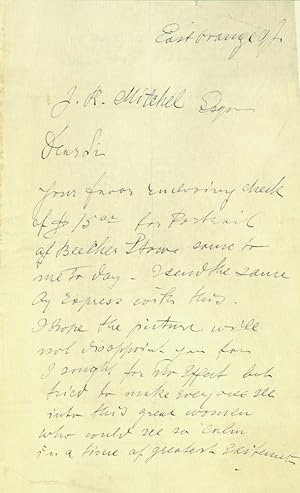 East Orange N.J.
J. R. Mitchel Esqr
Dear Sir
Your favor enclosing check
of $ 15 00 for Portrait
of Beecher Stowe came to
me to day. I send the same
by Express with this.
I hope the picture will
not disappoint you for
I sought for no Effect but
tried to make Every one see
into this great women
who could see so calm
in a time of greatest Excitement